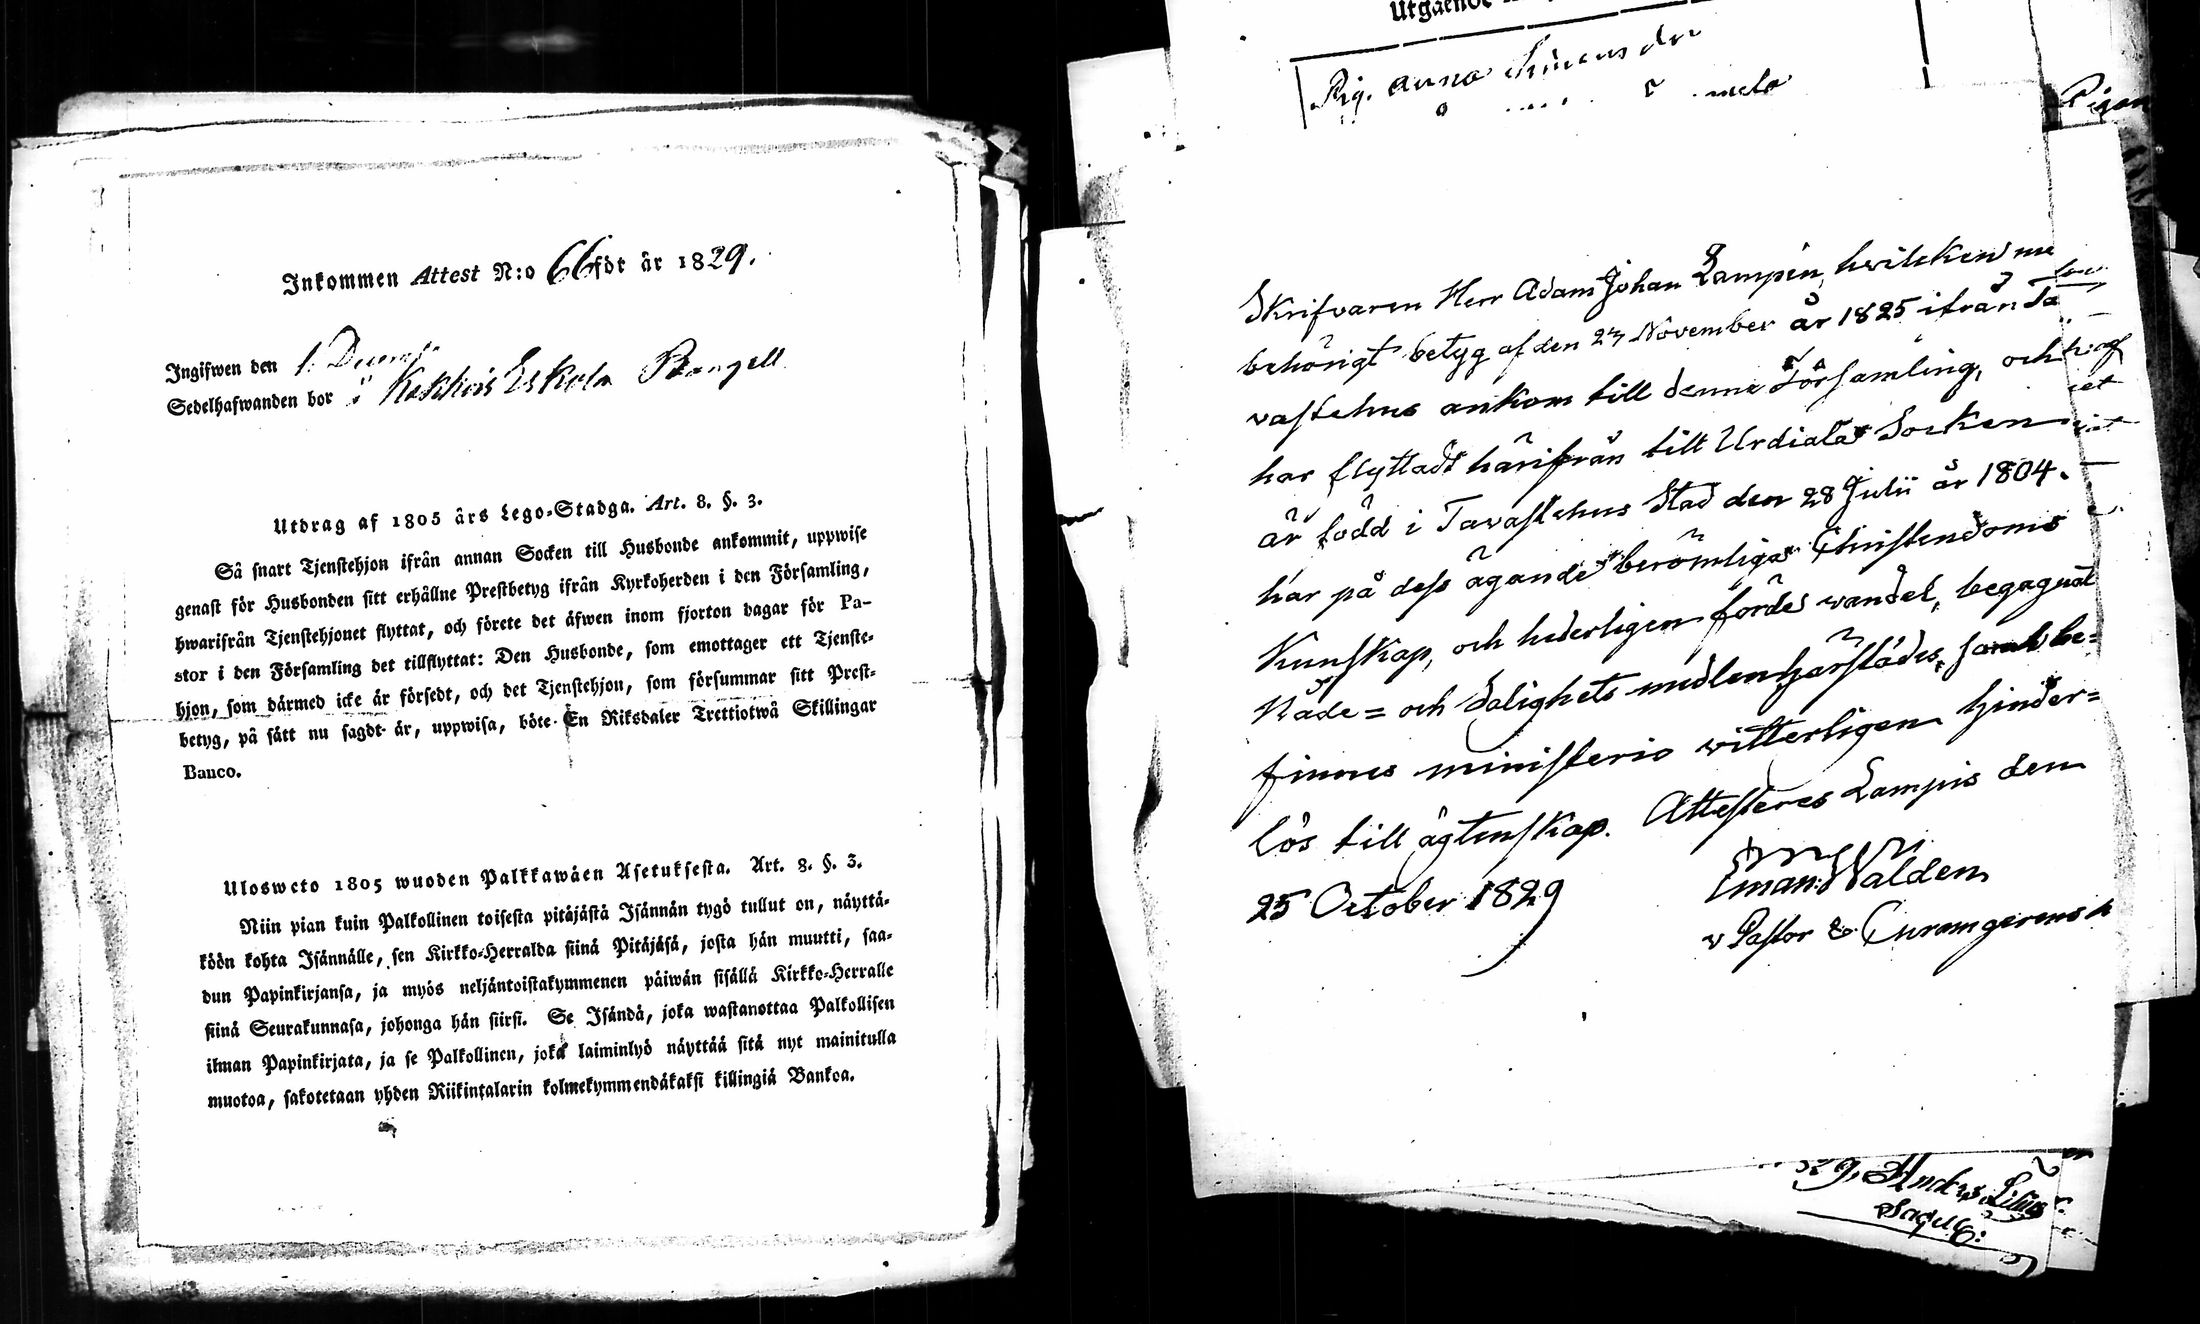 Inkommen Attest N:o 66 för år 1829.
Ingifwen den 1. Decemb
Sedelhafwanden bor i Kokkois Eskola
Utdrag af 1805 års Lego-Stadga. Art. 8. §. 3.
Så snart Tjenstehjon ifrån annan Socken till Husbonde ankommit, uppwise
genast för Husbonden sitt erhållne Prestbetyg ifrån Kyrkoherden i den Församling,
hwarifrån Tjenstehjonet flyttat, och förete det äfwen inom fjorton dagar för Pa-
stor i den Församling det tillflyttat: Den Husbonde, som emottager ett Tjenste-
hjon, som därmed icke är försedt, och det Tjenstehjon, som försummar sitt Prest-
betyg, på sätt nu sagdt är, uppwisa, böte En Riksdaler Trettiotwå Skillingar
Banco.
Ulosweto 1805 wuoden Palkkawäen Asetuksesta. Art. 8. §. 3.
Niin pian kuin Palkollinen toisesta pitäjästä Isännän tygö tullut on, näyttä-
köön kohta Isännälle, sen Kirkko-Herralda siinä Pitäjäsä, josta hän muutti, saa-
dun Papinkirjansa, ja myös neljäntoistakymmenen päiwän sisällä Kirkko-Herralle
siinä Seurakunnasa, johonga hän siirsi. Se Isändä, joka wastanottaa Palkollisen
ilman Papinkirjata, ja se Palkollinen, joka laiminlyö näyttää sitä nyt mainitulla
muotoa, sakotetaan yhden Riikintalarin kolmekymmendäkaksi killingiä Bankoa.
Utgående
Pig. Anna
Pigan
Skrifvaren Herr Adam Johan Lampén, hvilcken nu
behörigt betyg af den 27 November år 1825 ifrån Ta
vastehus ankom till denna Församling, och
har flyttadt härifrån till Urdiala Socken
är född i Tavastehus Stad den 28 Julii år 1804.
har på dess ägande berömliga Christendoms
Kunskap, och hederligen förde vandel, begagnat
Nåde= och Salighets medlen härstädes, samt be=
finnes ministerio vitterligen hinder=
lös till ägtenskap. Attesteres Lampis den
25 October 1829
Eman: Walden
v Pastor &